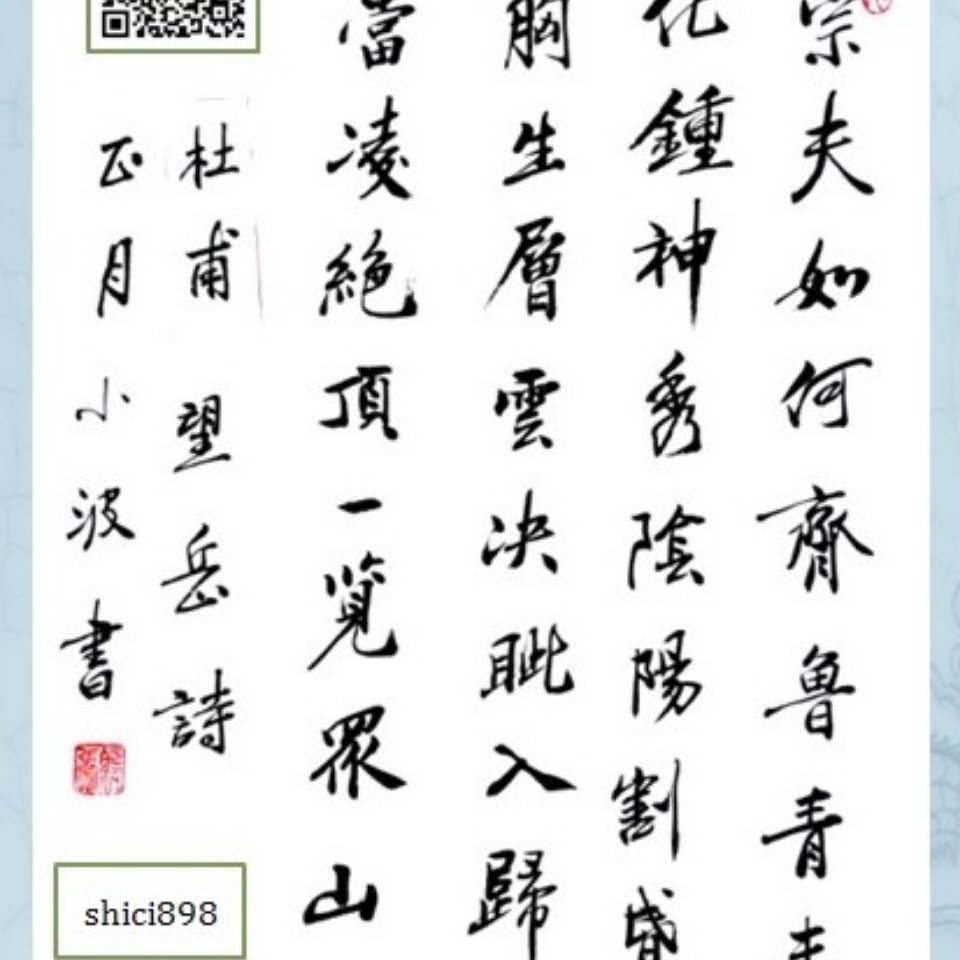 宗夫如何齊魯青未
化鍾神秀陰陽割昏
胸生層雲決眦入歸
當凌絕頂一覽眾山
杜甫 望岳詩
正月 小波書
shici898